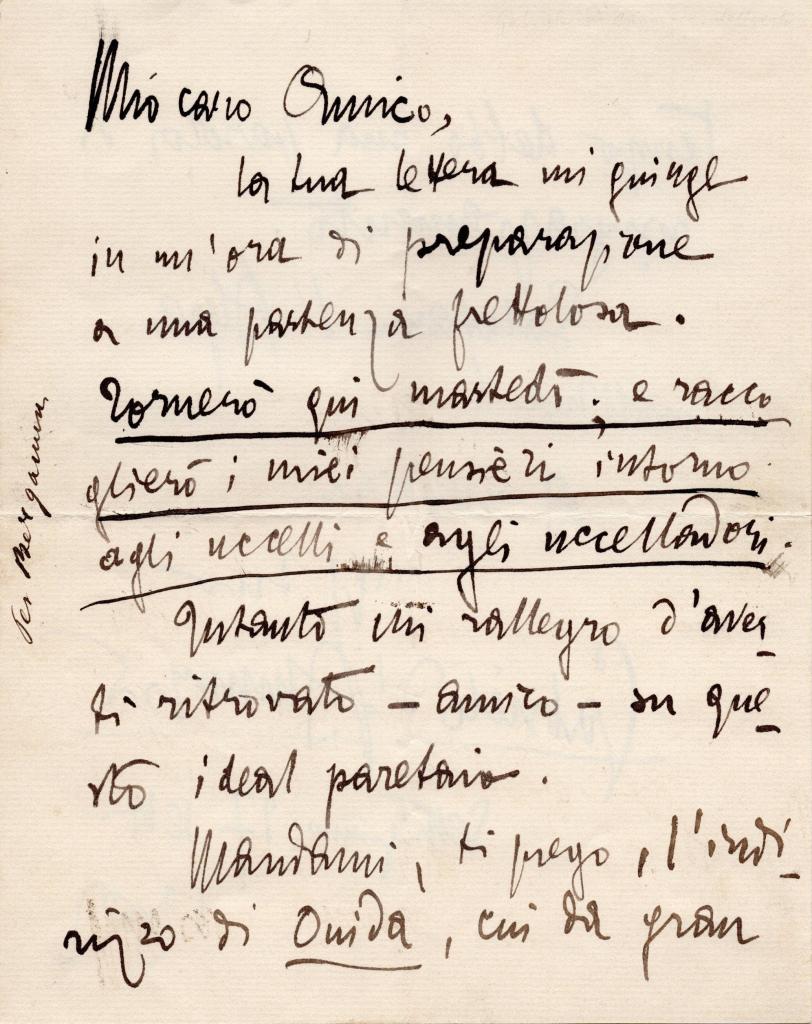 Mio caro Amico,
la tua lettera mi giunge
in un'ora di preparazione
a una partenza frettolosa.
Tornerò qui martedì; e racco
glierò i miei pensieri intorno
agli uccelli e agli uccellatori.
Intanto mi rallegro d'aver
ti ritrovato – amico – su que
sto ideal paretaio.
Mandami, ti prego, l'indi-
rizzo di Ouida, cui da gran
Per Bergamin